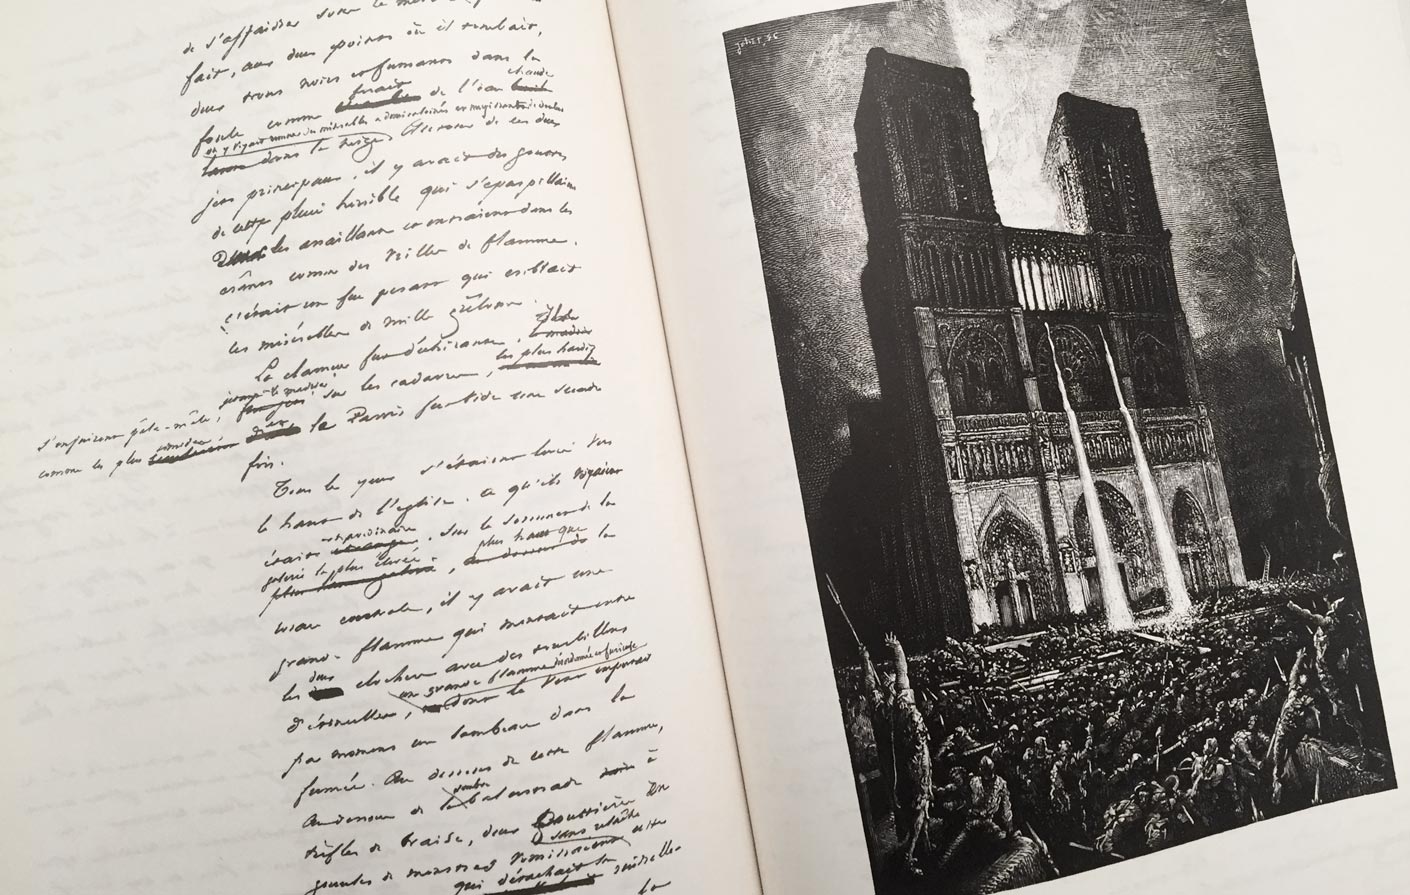 de s'affaisser sous le
fait, aux deux points où il tombait,
deux trous noirs et fumants dans la
chaude
foule comme ferait de l'eau
on y voyait remuer des misérables à demi calcinés et mugissants de douleur
dans la neige. Autour de ces deux
jets principaux, il y avait des gouttes
de cette pluie horrible qui s'éparpillaient
les assaillants et entraient dans les
crânes comme des vrilles de flamme.
c'était un feu pesant qui criblait
les misérables de mille grêlons.
La clameur fut déchirante.
jetant le madrier sur les cadavres, les plus hardis
s'enfuirent pêle-mêle,
comme les plus timides et le Parvis fut vide une seconde
fois.
Tous les yeux s'étaient levés vers
le haut de l'église. ce qu'ils voyaient
était extraordinaire. sur le sommet de la
galerie la plus élevée, plus haut que la
rosace centrale, il y avait une
grande flamme qui montait entre
les deux clochers avec des tourbillons
une grande flamme désordonnée et furieuse
d'étincelles, dont le vent emportait
par moments un lambeau dans la
fumée. Au dessous de cette flamme,
au dessous de la sombre balustrade à
trèfles de braise, deux gouttières en
gueules de monstres vomissaient sans relâche cette
qui détachait